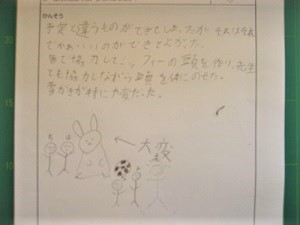 かんそう
予定と違うものができてしまったが それはそれ
でかわいいのができてよかった。
皆で協力して、フィーの頭を作り、先生
とも協力しながら頭を体にのせた。
骨かきが特に大変だった。
大変